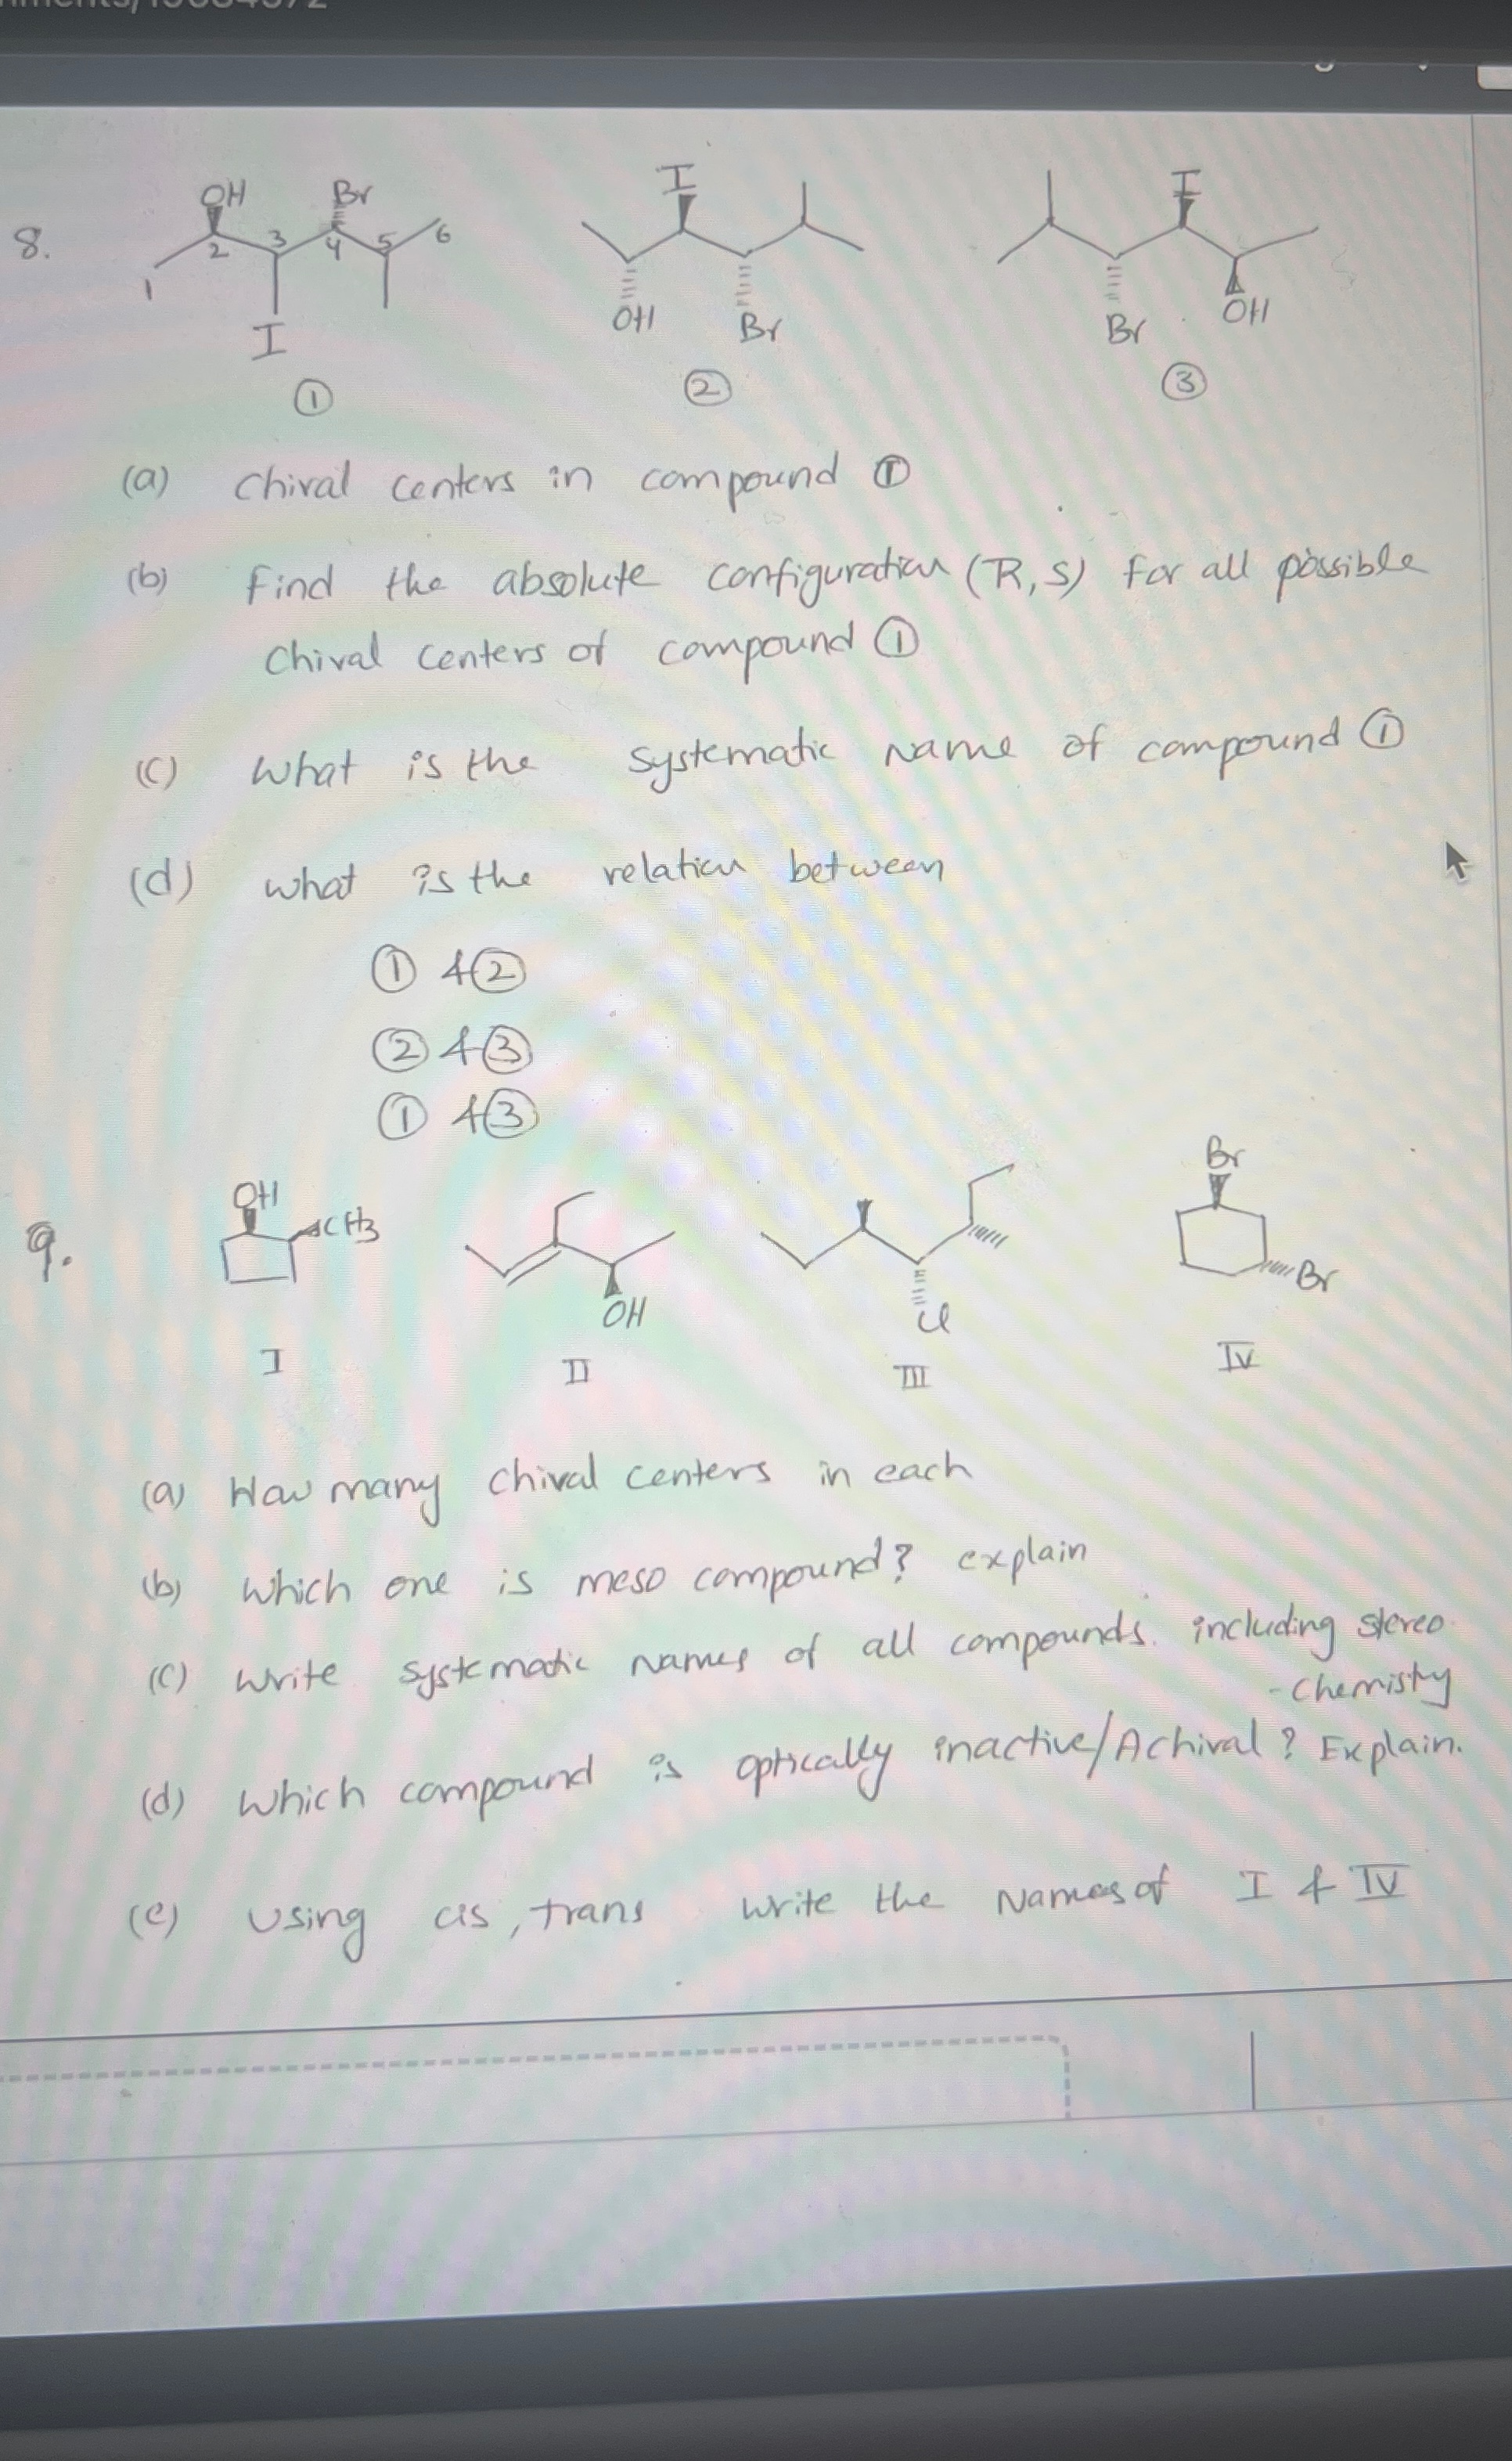 8.
OH Br
1 2 3 4 5 6
I
①
I
OH Br
②
I
Br OH
③
(a) Chiral centers in compound ①
(b) Find the absolute configuration (R,S) for all possible
Chiral centers of compound ①
(c) What is the systematic name of compound ①
(d) what is the relation between
① & ②
② & ③
① & ③
9.
OH
CH3
I
OH
II
Cl
III
Br
Br
IV
(a) How many chiral centers in each
(b) Which one is meso compound? explain
(c) Write systematic names of all compounds. including stereo
-Chemisty
(d) Which compound is optically inactive/Achiral? Explain.
(e) Using cis, trans write the Names of I & IV